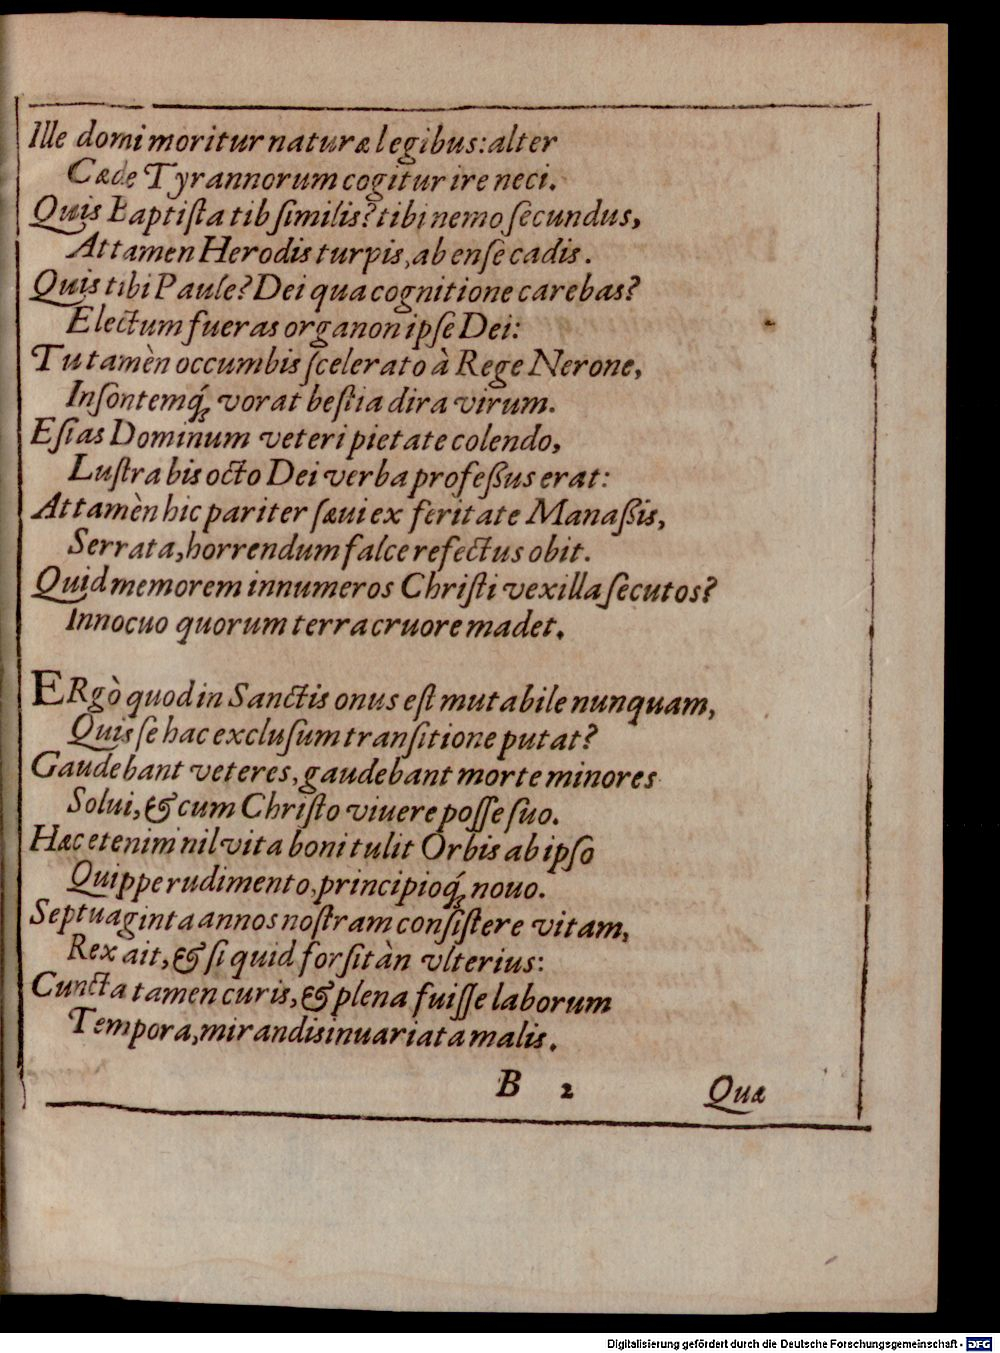 Ille domi moritur naturæ legibus: alter
Cæde Tyrannorum cogitur ire neci.
Quis Baptiſta tib ſimilis? tibi nemo ſecundus,
Attamen Herodis turpis, ab enſe cadis.
Quis tibi Paule? Dei qua cognitione carebas?
Electum fueras organon ipſe Dei:
Tu tamèn occumbis ſcelerato à Rege Nerone,
Inſontemq́; vorat beſtia dira virum.
Eſias Dominum veteri pietate colendo,
Luſtra bis octo Dei verba profeßus erat:
Attamèn hic pariter ſæui ex feritate Manaßis,
Serrata, horrendum falce refectus obit.
Quid memorem innumeros Chriſti vexilla ſecutos?
Innocuo quorum terra cruore madet.
ERgò quod in Sanctis onus eſt mutabile nunquam,
Quis ſe hac excluſum tranſitione putat?
Gaudebant veteres, gaudebant morte minores
Solui, & cum Chriſto viuere poſſe ſuo.
Hæc etenim nil vita boni tulit Orbis ab ipſo
Quippe rudimento, principioq́; nouo.
Septuaginta annos noſtram conſiſtere vitam,
Rex ait, & ſi quid forſitàn vlterius:
Cuncta tamen curis, & plena fuiſſe laborum
Tempora, mirandis inuariata malis.
B 2 Quæ
Digitalisierung gefördert durch die Deutsche Forschungsgemeinschaft - DFG